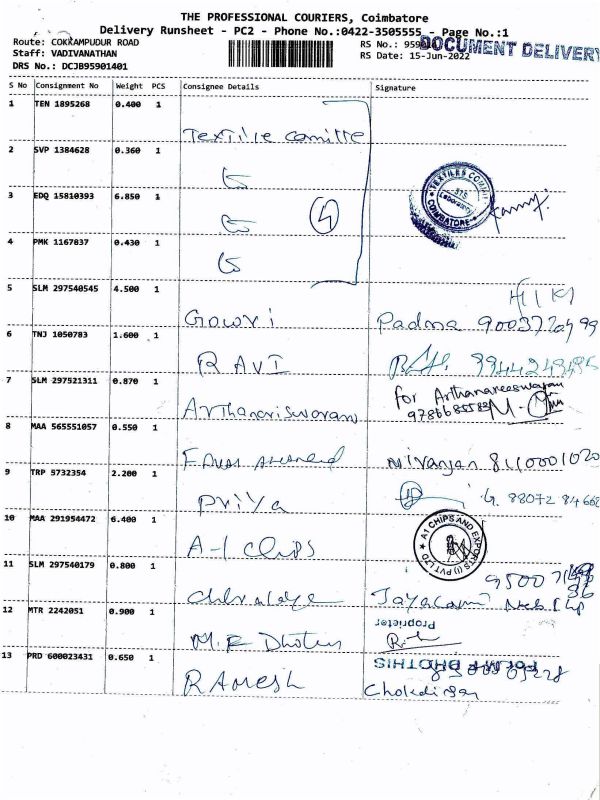 THE PROFESSIONAL COURIERS, Coimbatore
Delivery Runsheet - PC2 - Phone No.:0422-3505555 - Page No.:1
Route: COKKAMPUDUR ROAD
RS No.: 959
DOCUMENT DELIVERY
Staff: VADIVANATHAN
RS Date: 15-Jun-2022
DRS No.: DCJB95901401
S No Consignment No Weight PCS Consignee Details Signature
1 TEN 1895268 0.400 1
Textile Comitte
2 SVP 1384628 0.360 1
TEXTILES COMMI
Laboratory
COIMBATORE
3 EDQ 15810393 6.850 1
4
4 PMK 1167837 0.430 1
5 SLM 297540545 4.500 1
Gowri Padma
6 TNJ 1050783 1.600 1
RAVI 9944243495
7 SLM 297521311 0.870 1
for Arthanareeswaran
Arthanariswaran 9786685583
8 MAA 565551057 0.550 1
Niranjan 8110001020
9 TRP 5732354 2.200 1
Priya G. 88072 84662
10 MAA 291954472 6.400 1
A1 CHIPS AND EXPORTS (I) PVT LTD
A-1 Chips
11 SLM 297540179 0.800 1
95007
12 MTR 2242051 0.900 1
Proprietor
M.R Dhoties
13 PRD 600023431 0.650 1
DHOTHIS
RAMESH